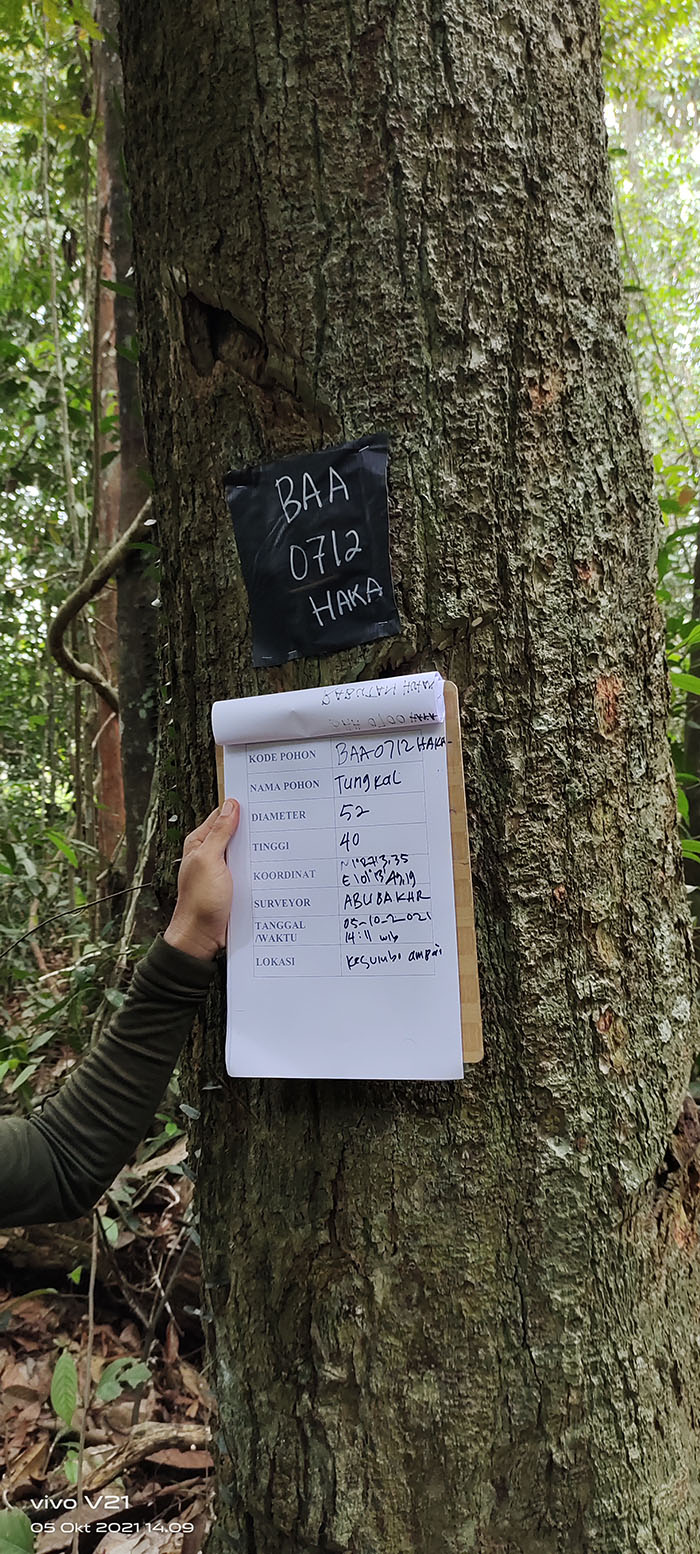 BAA
0712
HAKA
KODE POHON BAA 0712 HAKA
NAMA POHON Tungkal
DIAMETER 52
TINGGI 40
KOORDINAT
SURVEYOR ABUBAKHR
TANGGAL /WAKTU 05-10-2021
14:11 wib
LOKASI Kesumbo ampai
vivo V21
05 Okt 2021 14.09